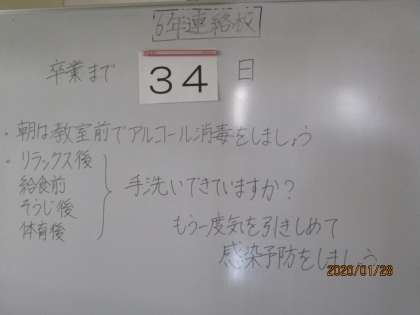 6年連絡板
卒業まで 34 日
・朝は教室前でアルコール消毒をしましょう
・リラックス後
給食前
そうじ後
体育後
手洗いできていますか?
もう一度気を引きしめて
感染予防をしましょう
2020/01/28